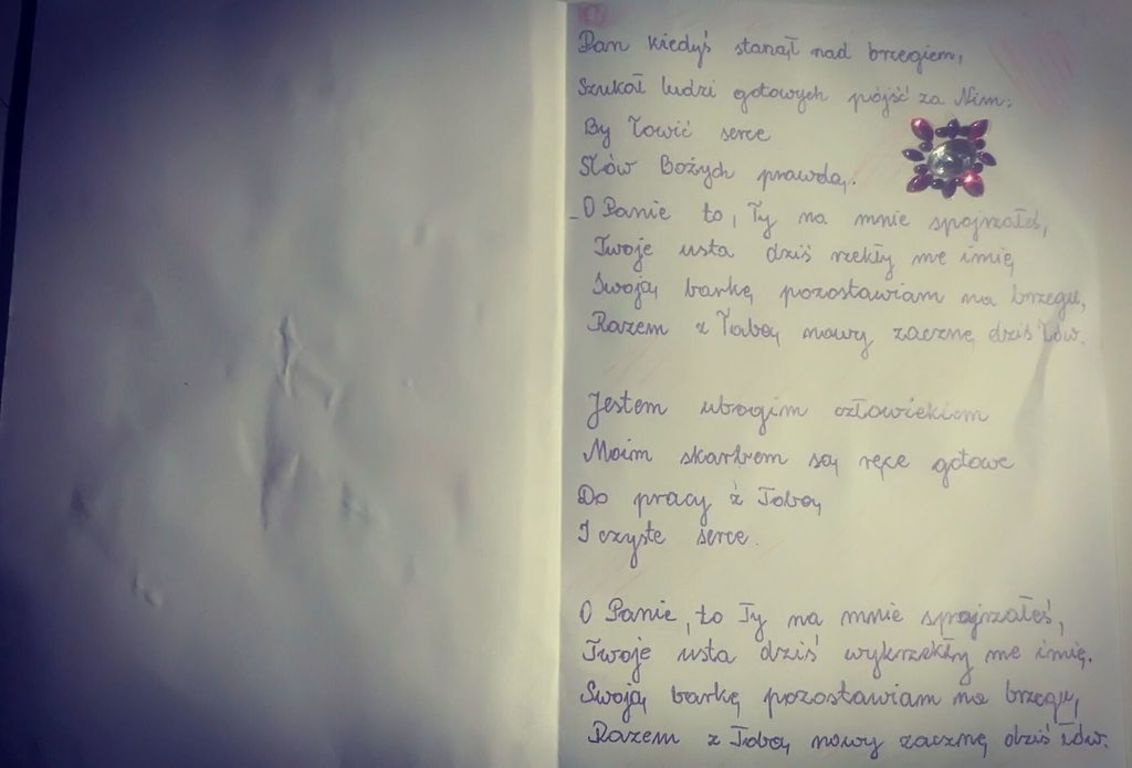 Pan kiedyś stanął nad brzegiem,
Szukał ludzi gotowych pójść za Nim;
By łowić serce
Słów Bożych prawdą.
O Panie to, Ty na mnie spojrzałeś,
Twoje usta dziś rzekły me imię
Swoją barkę pozostawiam na brzegu,
Razem z Tobą nowy zacznę dziś łów.
Jestem ubogim człowiekiem
Moim skarbem są ręce gotowe
Do pracy z Tobą
I czyste serce.
O Panie, to Ty na mnie spojrzałeś,
Twoje usta dziś wykrzekły me imię.
Swoją barkę pozostawiam na brzegu,
Razem z Tobą nowy zacznę dziś łów.